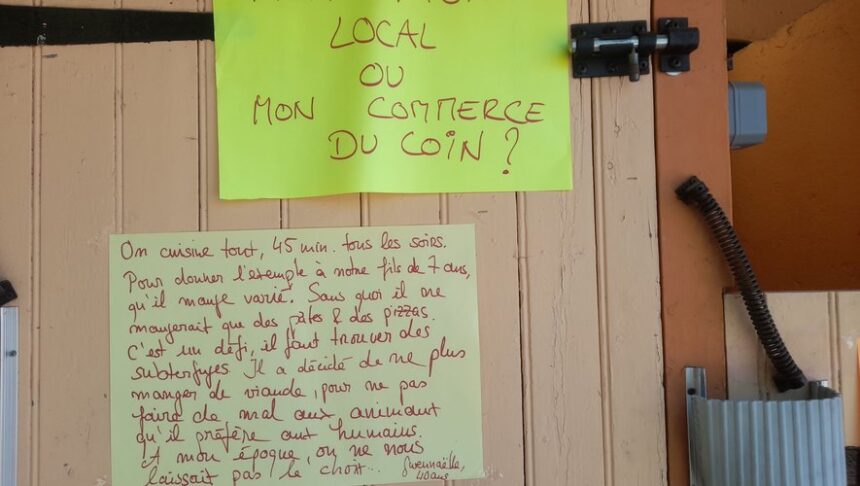 LOCAL
OU
MON COMMERCE
DU COIN ?
On cuisine tout, 45 min. tous les soirs.
Pour donner l'exemple à notre fils de 7 ans,
qu'il mange varié. Sans quoi il ne
mangerait que des pâtes & des pizzas.
C'est un défi, il faut trouver des
subterfuges. Il a décidé de ne plus
manger de viande, pour ne pas
faire de mal aux animaux
qu'il préfère aux humains.
A mon époque, on ne nous
laissait pas le choix...
Gwennaëlle,
40 ans